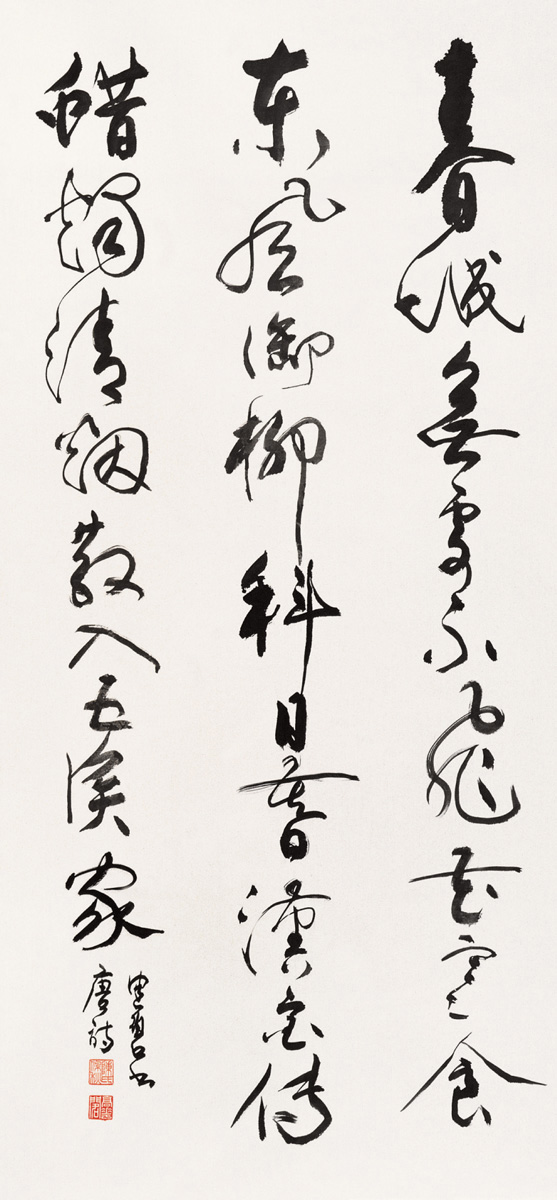 春城無處不飛花寒食
東風御柳斜日暮漢宮传
蜡燭清烟散入五侯家
唐詩
书